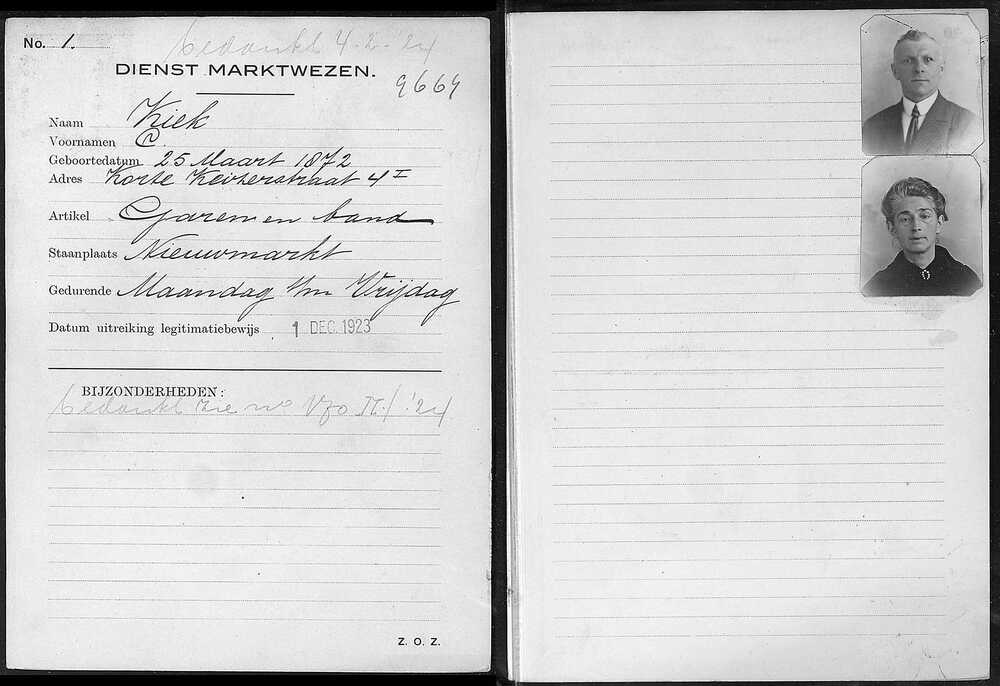 No. 1.
bedankt 4-2-'24
DIENST MARKTWEZEN.
9664
Naam Kiek
Voornamen
Geboortedatum 25 Maart 1872
Adres Korte Keizerstraat 4 I
Artikel Garen en band
Staanplaats Nieuwmarkt
Gedurende Maandag t/m Vrijdag
Datum uitreiking legitimatiebewijs 1 DEC. 1923
BIJZONDERHEDEN:
bedankt zie no '24
Z. O. Z.